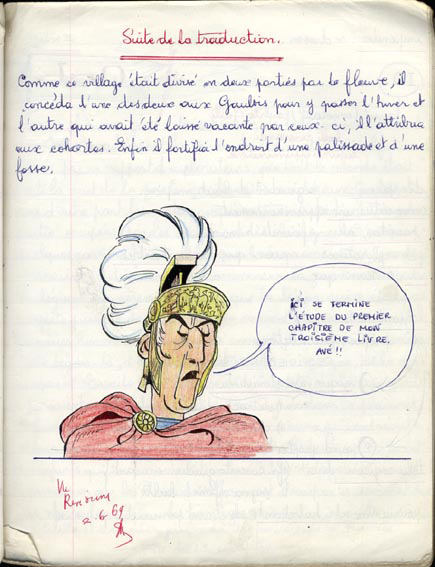 Suite de la traduction.
Comme ce village était divisé en deux parties par le fleuve, il
concéda l'une des deux aux Gaulois pour y passer l'hiver et
l'autre qui avait été laissé vacante par ceux-ci, il l'attribua
aux cohortes. Enfin il fortifia l'endroit d'une palissade et d'une
fosse.
ICI SE TERMINE
L'ÉTUDE DU PREMIER
CHAPITRE DE MON
TROISIÈME LIVRE.
AVÉ!!
Vu
2.6.69